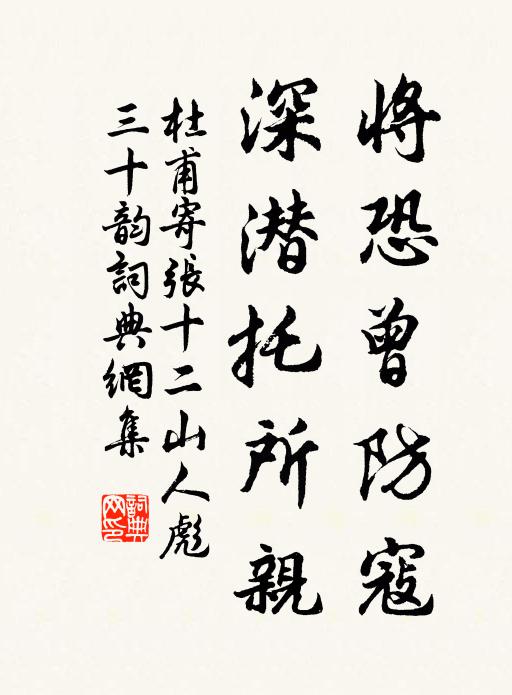 將恐曾防寇
深潛托所親
杜甫寄張十二山人彪
三十韵詞典網集
詞典網印